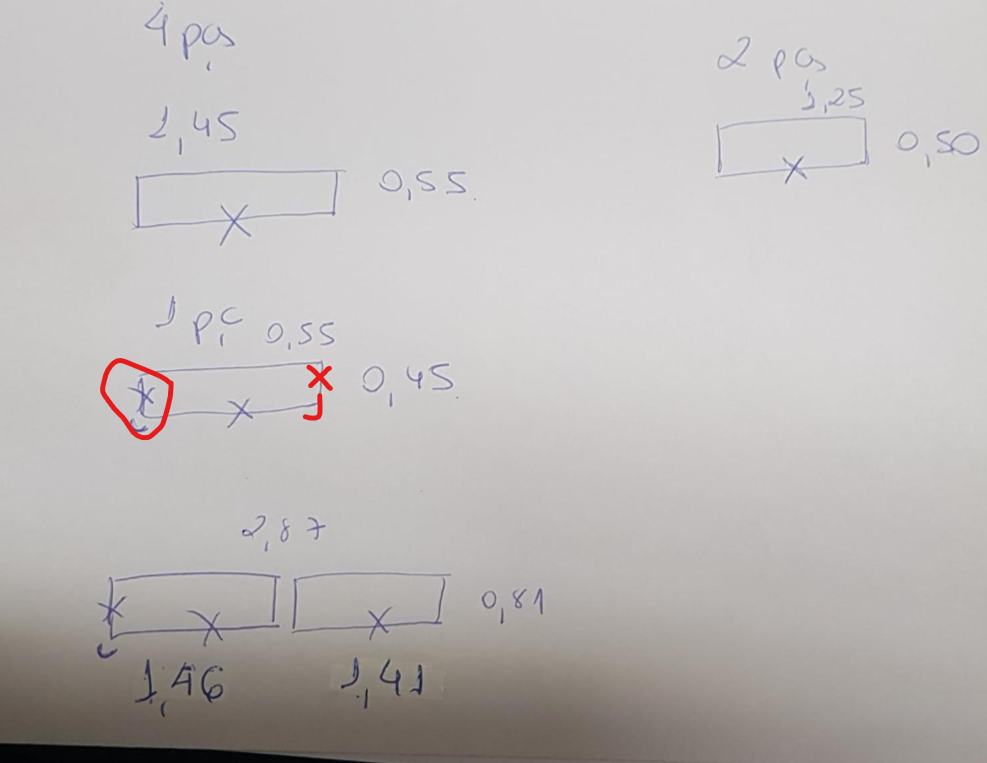 4 pçs
1,45
0,55
2 pçs
1,25
0,50
1 pç 0,55
0,45
2,87
0,81
1,46
1,41